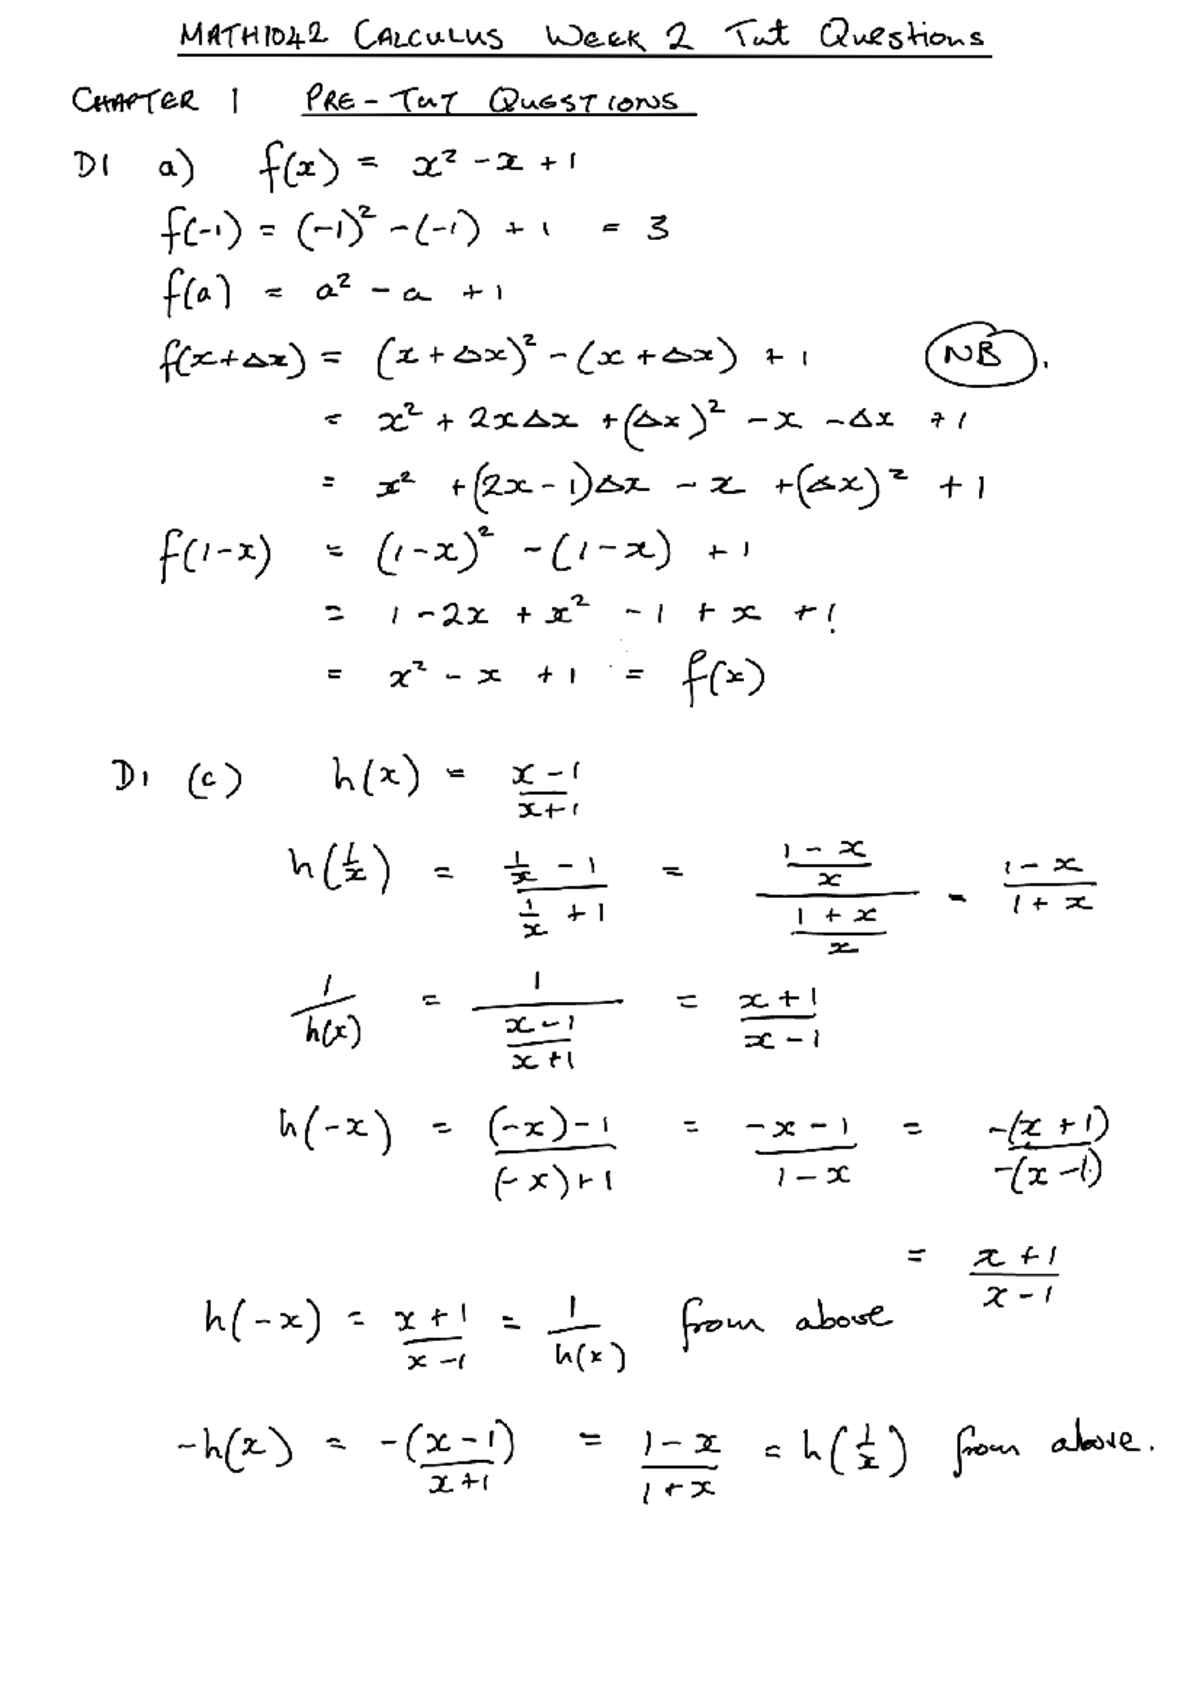 MATH1042 CALCULUS WEEK 2 Tut Questions
CHAPTER 1 PRE-TUT QUESTIONS
D1 a) f(x) = x² - x + 1
f(-1) = (-1)² - (-1) + 1 = 3
f(a) = a² - a + 1
f(x+Δx) = (x+Δx)² - (x+Δx) + 1 NB.
= x² + 2xΔx + (Δx)² - x - Δx + 1
= x² + (2x-1)Δx - x + (Δx)² + 1
f(1-x) = (1-x)² - (1-x) + 1
= 1 - 2x + x² - 1 + x + 1
= x² - x + 1 = f(x)
D1 (c) h(x) = (x-1)/(x+1)
h(1/x) = (1/x - 1)/(1/x + 1) = ((1-x)/x)/((1+x)/x) = (1-x)/(1+x)
1/h(x) = 1/((x-1)/(x+1)) = (x+1)/(x-1)
h(-x) = ((-x)-1)/((-x)+1) = (-x-1)/(1-x) = -(x+1)/-(x-1)
= (x+1)/(x-1)
h(-x) = (x+1)/(x-1) = 1/h(x) from above
-h(x) = -(x-1)/(x+1) = (1-x)/(1+x) = h(1/x) from above.